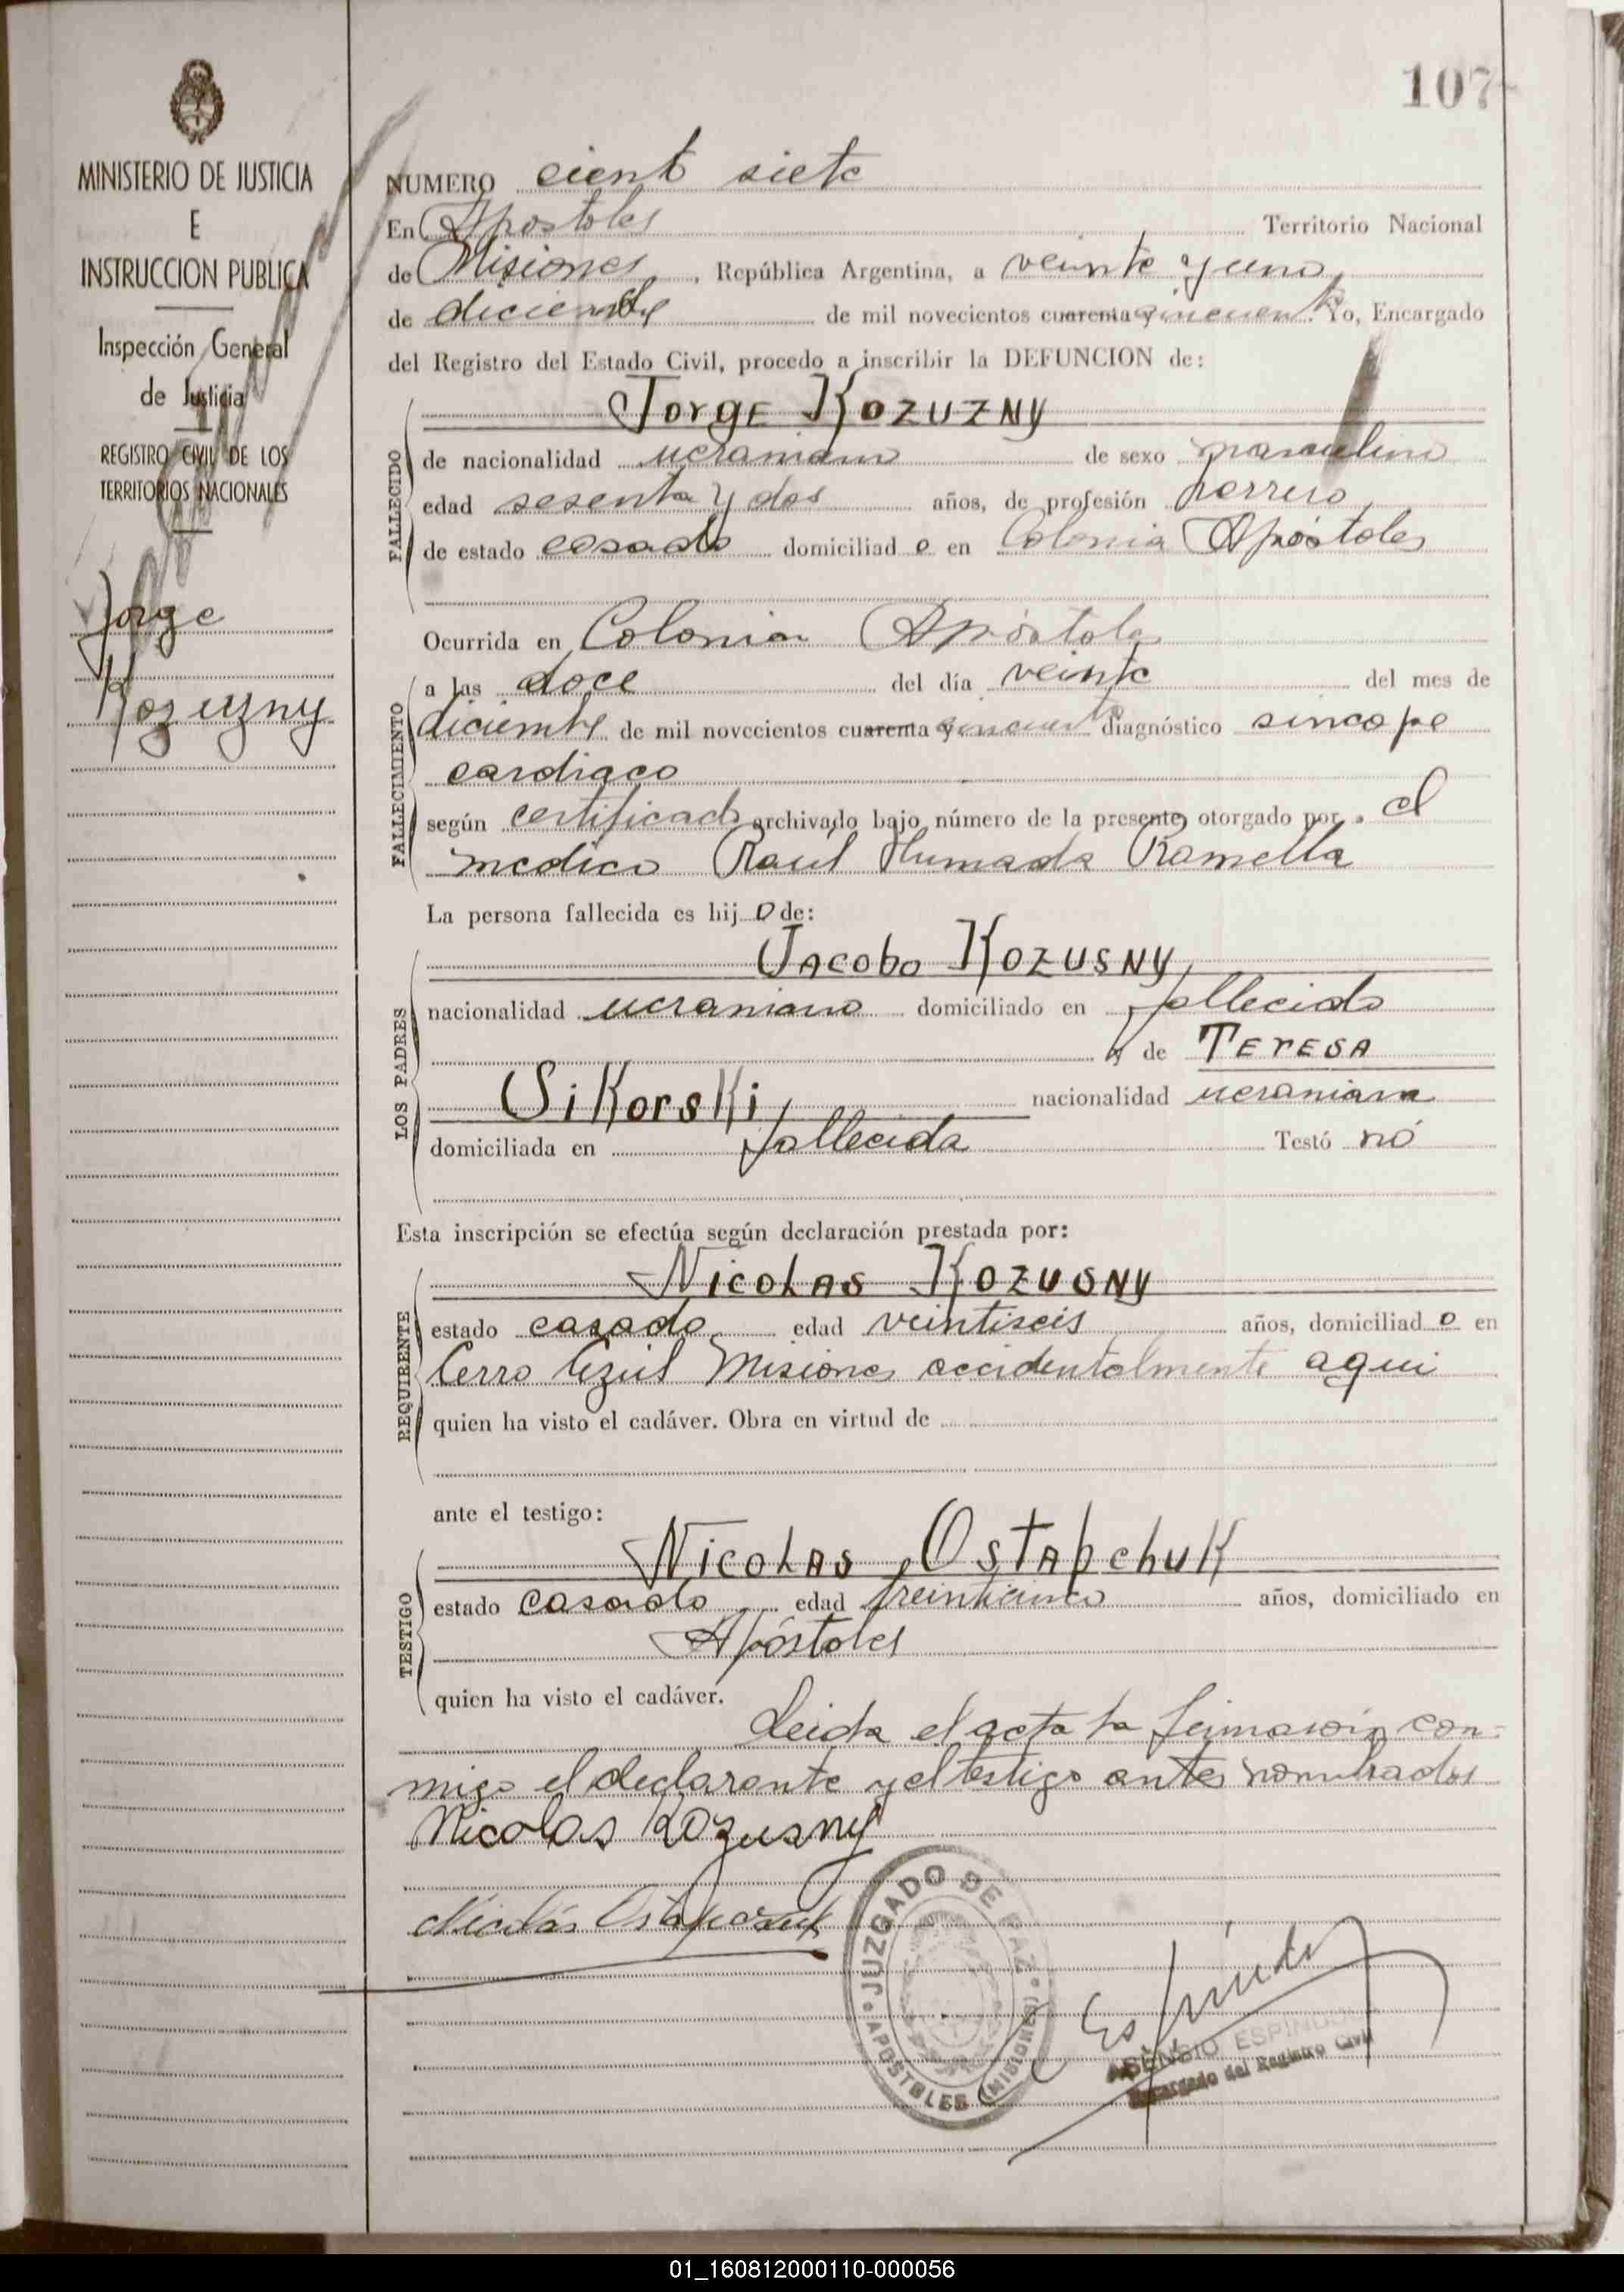 107
MINISTERIO DE JUSTICIA
E
INSTRUCCION PUBLICA
Inspección General
de Justicia
REGISTRO CIVIL DE LOS
TERRITORIOS NACIONALES
Jorge
Kozuzny
NUMERO ciento siete
En Apostoles Territorio Nacional
de Misiones, República Argentina, a veinte y uno
de diciembre de mil novecientos cuarenta y cincuenta. Yo, Encargado
del Registro del Estado Civil, procedo a inscribir la DEFUNCION de:
FALLECIDO
Jorge Kozuzny
de nacionalidad ucraniano de sexo masculino
edad sesenta y dos años, de profesión herrero
de estado casado domiciliad o en Colonia Apóstoles
Ocurrida en Colonia Apóstoles
FALLECIMIENTO
a las doce del día veinte del mes de
diciembre de mil novecientos cuarenta y cincuenta diagnóstico sincope
cardiaco
según certificado archivado bajo número de la presente, otorgado por el
medico Raúl Ahumada Ramella
La persona fallecida es hij o de:
LOS PADRES
Jacobo Kozusny,
nacionalidad ucraniano domiciliado en fallecido
y de Teresa
Sikorski, nacionalidad ucraniana
domiciliada en fallecida Testó nó
Esta inscripción se efectúa según declaración prestada por:
REQUIRENTE
Nicolas Kozusny
estado casado edad veintiseis años, domiciliad o en
Cerro Azul Misiones accidentalmente aqui
quien ha visto el cadáver. Obra en virtud de
ante el testigo:
TESTIGO
Nicolas Ostapchuk
estado casado edad treinticinco años, domiciliado en
Apóstoles
quien ha visto el cadáver.
Leida el acta la firmaron con-
migo el declarante y el testigo antes nombrados
Nicolas Kozusny
Nicolás Ostapczuk
JUZGADO DE PAZ
APOSTOLES (MISIONES)
ASENSIO ESPINDOLA
Encargado del Registro Civil
01_160812000110-000056